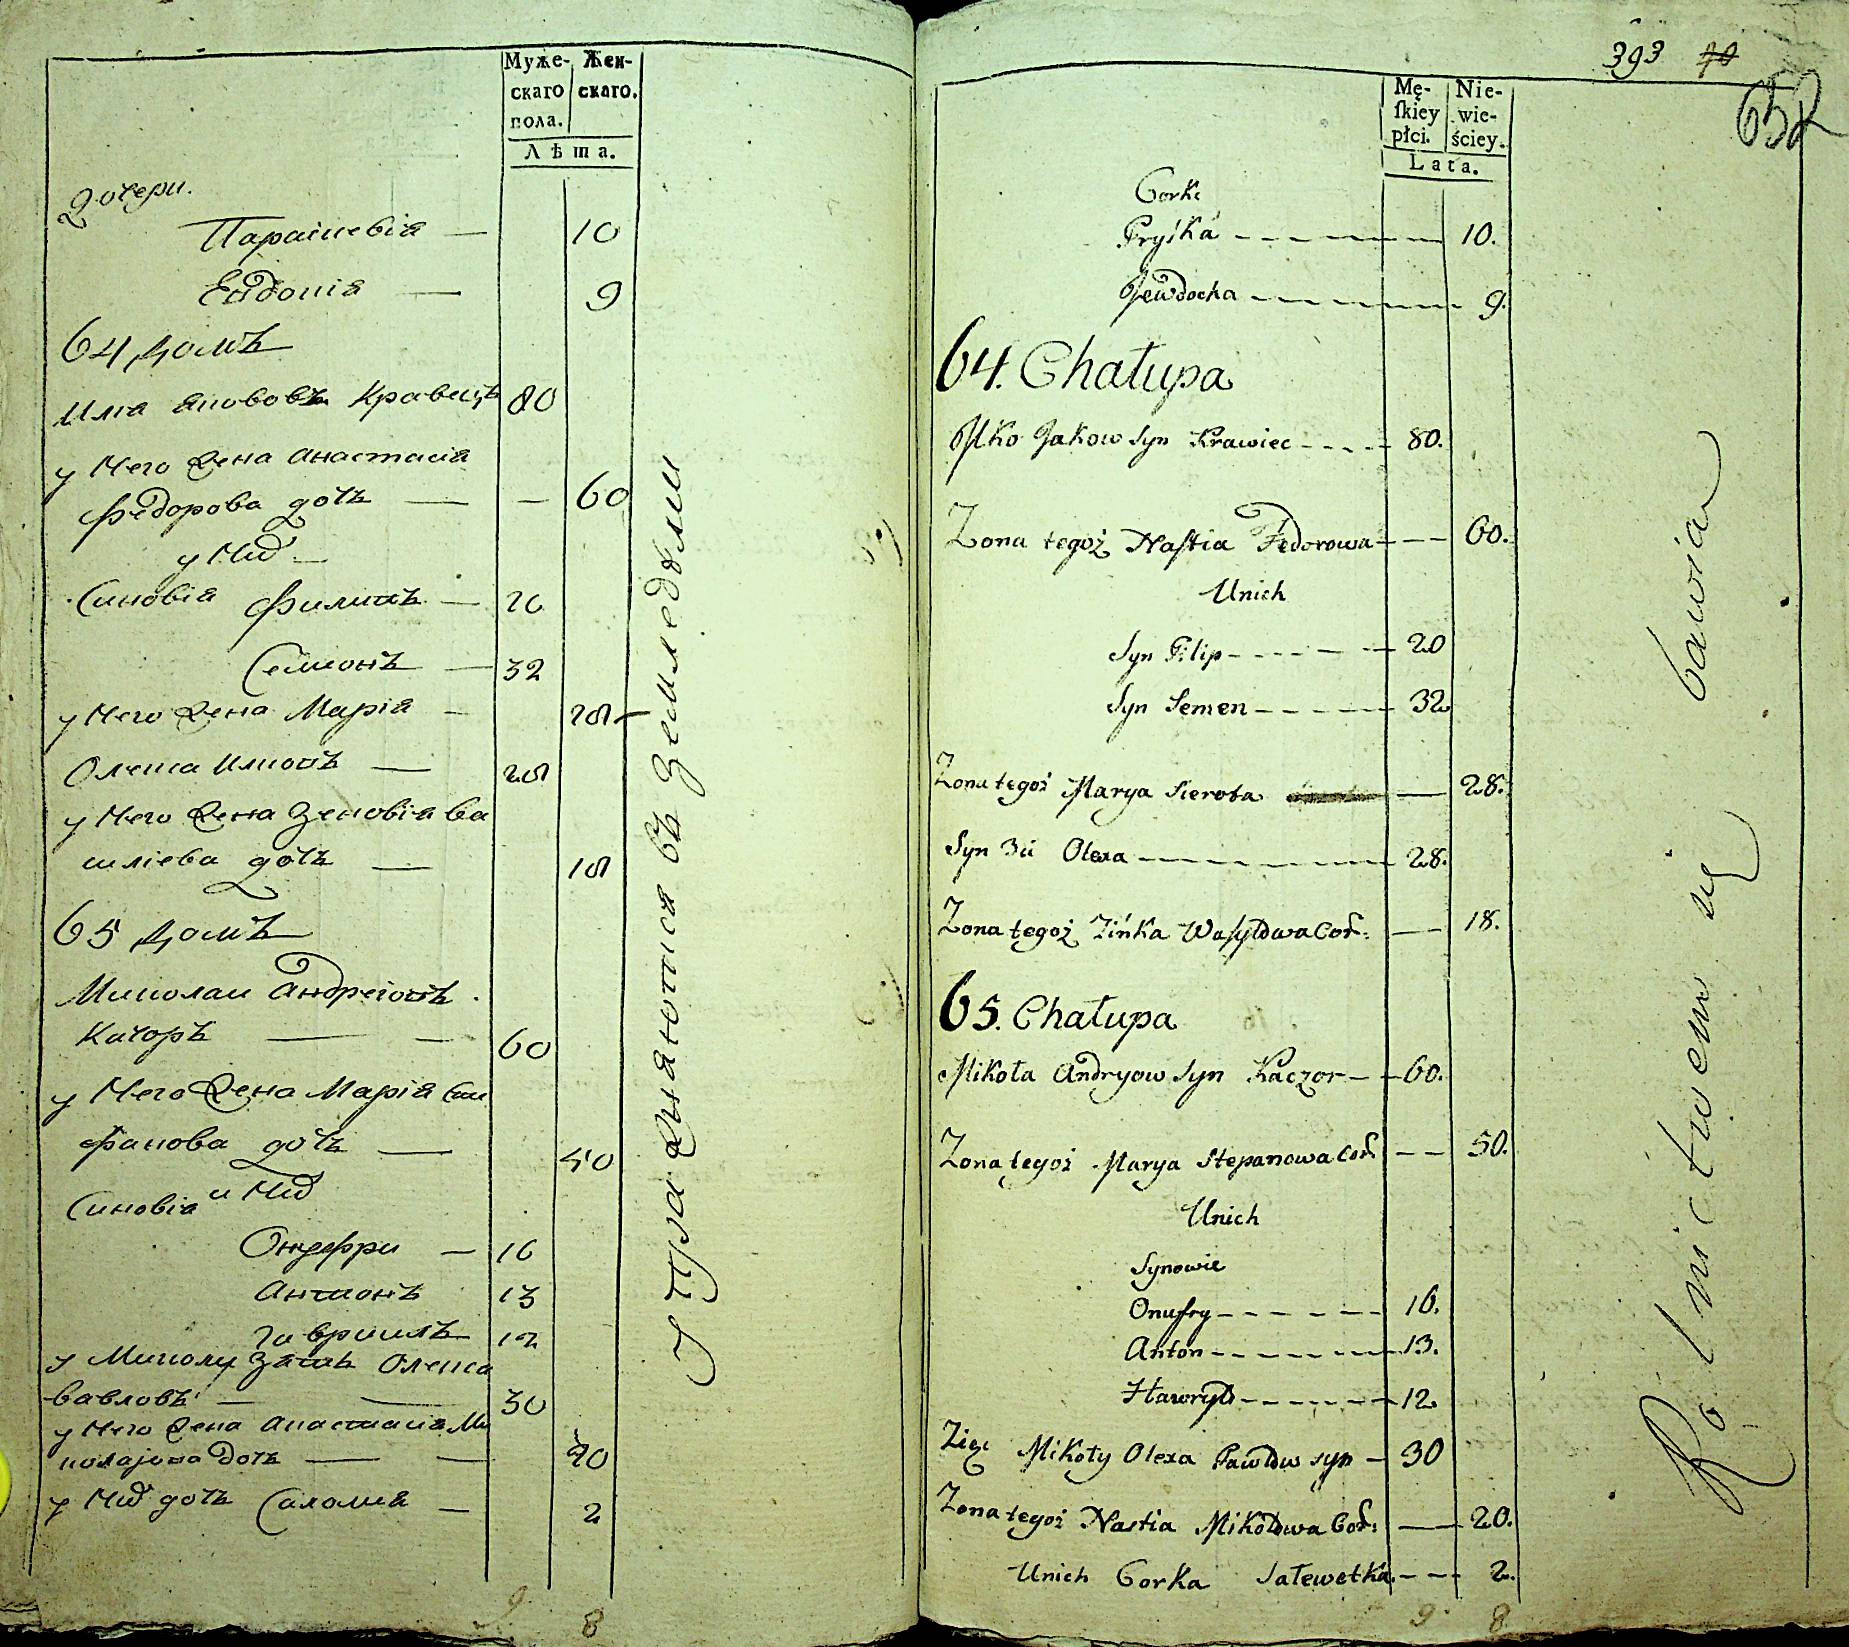 Муже- Жен-
скаго скаго.
пола.
Лѣта.
Дочери.
Параскевіа — 10
Евдокіа — 9
64 домъ
Илка Якововъ Кравецъ 80
у Него жена Анастасіа
Федорова дочъ — — 60
у Нид —
Синовіа Филипъ — 20
Семионъ — 32
у Него жена Маріа — 28
Олекса Илковъ — 28
у Него жена Зеновіа Ва
силіева дочъ — 18
65 домъ
Миколаи Андреіовъ
Качоръ — — 60
у Него жена Маріа Сте
фанова дочъ — 50
Синовіа и Нид
Онуфри — 16
Антонъ 13
Гавриилъ 12
у Миколи Зять Олекса
Вавловъ — — 30
у Него жена Анастасиа Ми
колајова дочъ — — 20
у Нид дочъ Саломиа — 2
9 8
Упражняются въ Земледѣли
393 40
652
Mę- Nie-
ſkiey wie-
płci. ściey.
Lata.
Corki
Pryśka - - - - 10.
Jewdocha - - - - 9.
64. Chałupa
Jlko Jakow Syn Krawiec - - - - 80.
Zona tegoż Naſtia Fedorowa - - - 60.
Unich
Syn Filip - - - - 20
Syn Semen - - - - 32
Zona tegoż Marya Sierota — 28.
Syn 3ci Olexa - - - - 28.
Zona tegoż Zińka Waſylowa Cor: — 18.
65. Chałupa
Mikoła Andryow Syn Kaczor - - 60.
Zona tegoż Marya Stepanowa Cor - - 50.
Unich
Synowie
Onufry - - - - 16.
Anton - - - - 13.
Hawryło - - - - 12.
Zięć Mikoły Olexa Pawłow syn - 30
Zona tegoż Nastia Mikołowa Cor: — 20.
Unich Corka Sałewetka. - - - 2.
9 8
Rolnictwem się bawia